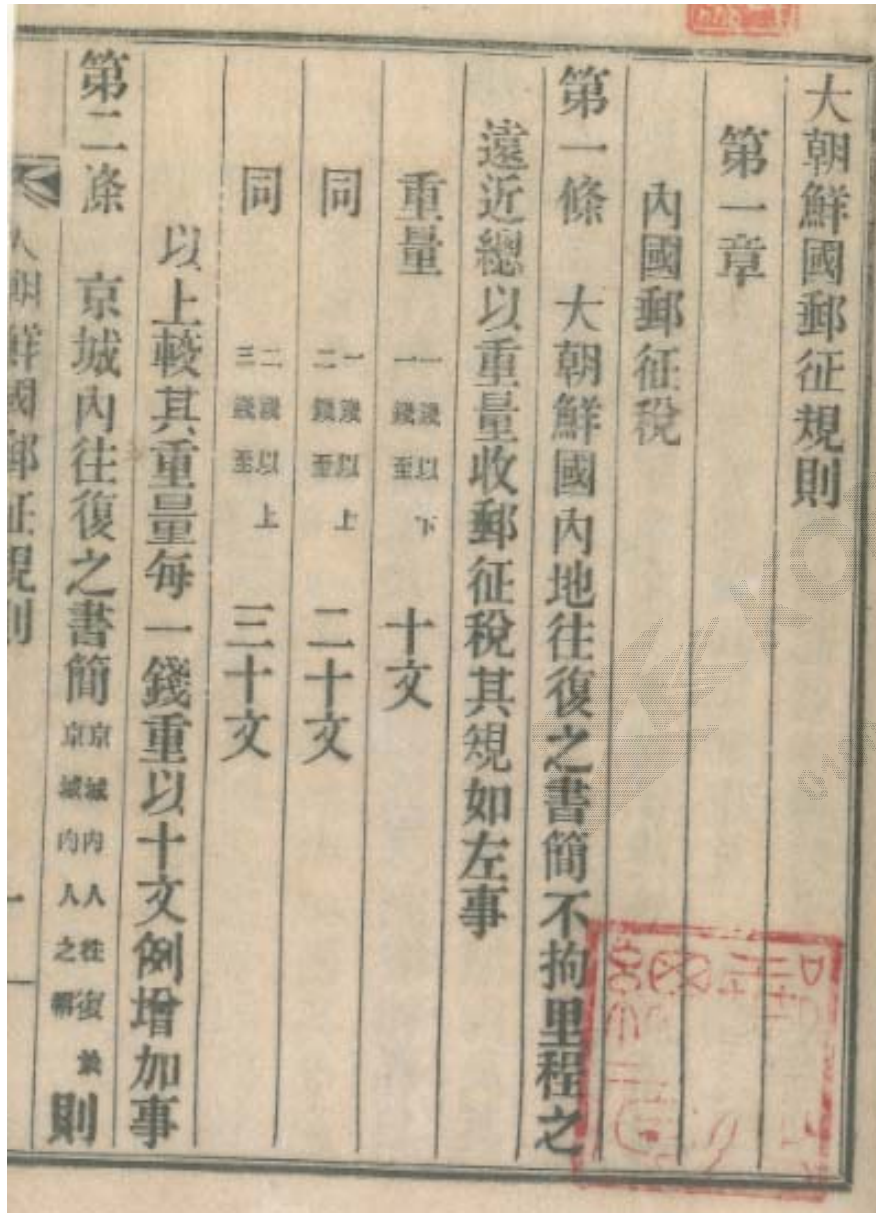 大朝鮮國郵征規則
第一章
內國郵征稅
第一條　大朝鮮國內地往復之書簡不拘里程之
遠近總以重量收郵征稅其規如左事
重量　一錢以下　一錢至　十文
同　一錢以上　二錢至　二十文
同　二錢以上　三錢至　三十文
以上較其重量每一錢重以十文例增加事
第二條　京城內往復之書簡　京城內人往復於　京城內人之　則
大朝鮮國郵征規則　一